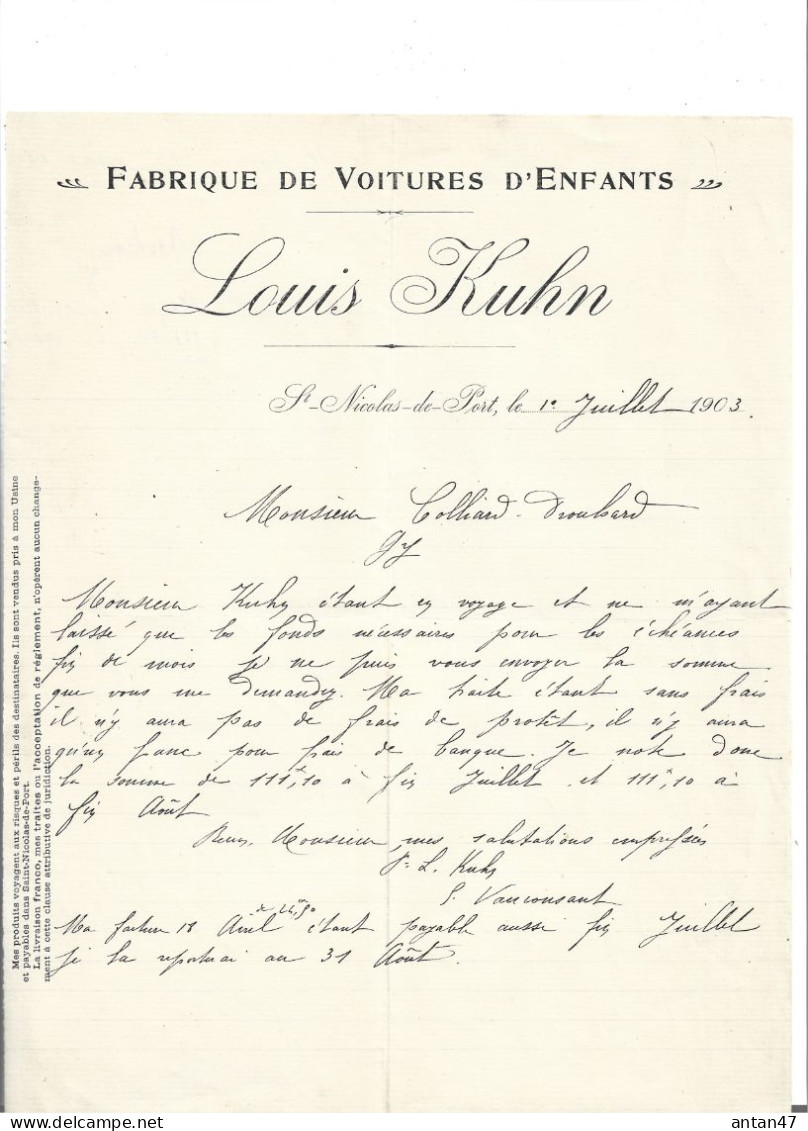 FABRIQUE DE VOITURES D'ENFANTS
Louis Kuhn
St-Nicolas-de-Port, le 1e Juillet 1903.
Monsieur Colliard-Droubard
Gy
Monsieur Kuhn étant en voyage et ne m'ayant
laissé que les fonds nécessaires pour les échéances
fin de mois je ne puis vous envoyer la somme
que vous me demandez. Ma traite étant sans frais
il n'y aura pas de frais de protêt, il n'y aura
qu'un franc pour frais de banque. Je note donc
la somme de 111f,10 à fin Juillet et 111f,10 à
fin Août
Recev. Monsieur, mes salutations empressées
Pr L. Kuhn
Ma facture 18 Avril de 26,50 étant payable aussi fin Juillet
je la reporterai au 31 Août.
Mes produits voyagent aux risques et périls des destinataires. Ils sont vendus pris à mon Usine
et payables dans Saint-Nicolas-de-Port.
La livraison franco, mes traites ou l'acceptation de règlement, n'opèrent aucun change-
ment à cette clause attributive de juridiction.
antan47